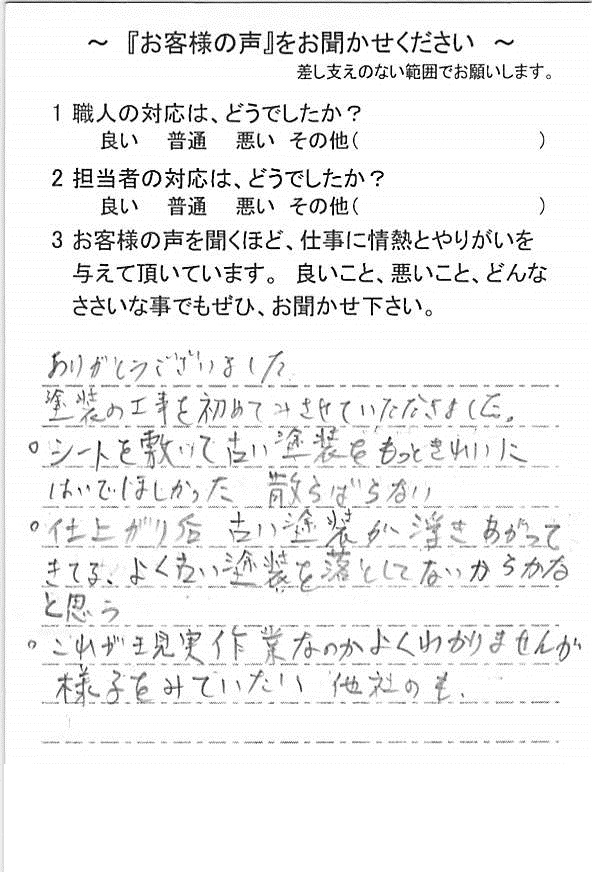 ～ 『お客様の声』をお聞かせください ～
差し支えのない範囲でお願いします。
1 職人の対応は、どうでしたか？
良い 普通 悪い その他( )
2 担当者の対応は、どうでしたか？
良い 普通 悪い その他( )
3 お客様の声を聞くほど、仕事に情熱とやりがいを
与えて頂いています。 良いこと、悪いこと、どんな
ささいな事でもぜひ、お聞かせ下さい。
ありがとうございました
塗装の工事を初めてみさせていただきました。
○シートを敷いて古い塗装をもっときれいに
はいでほしかった 散らばらない
○仕上がり后 古い塗装が浮きあがって
きてる、よく古い塗装を落としてないからかな
と思う
○これが現実作業なのかよくわかりませんが
様子をみていたい 他社のも、